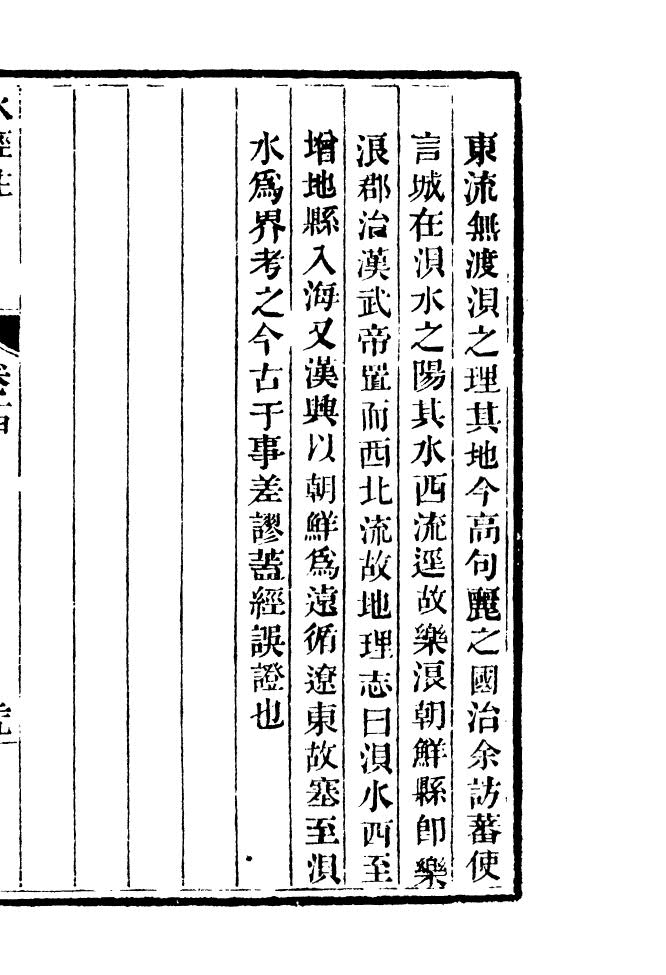 東流無渡浿之理其地今高句麗之國治余訪蕃使
言城在浿水之陽其水西流逕故樂浪朝鮮縣卽樂
浪郡治漢武帝置而西北流故地理志曰浿水西至
增地縣入海又漢興以朝鮮爲遠循遼東故塞至浿
水爲界考之今古于事差謬蓋經誤證也
水經注
卷十四